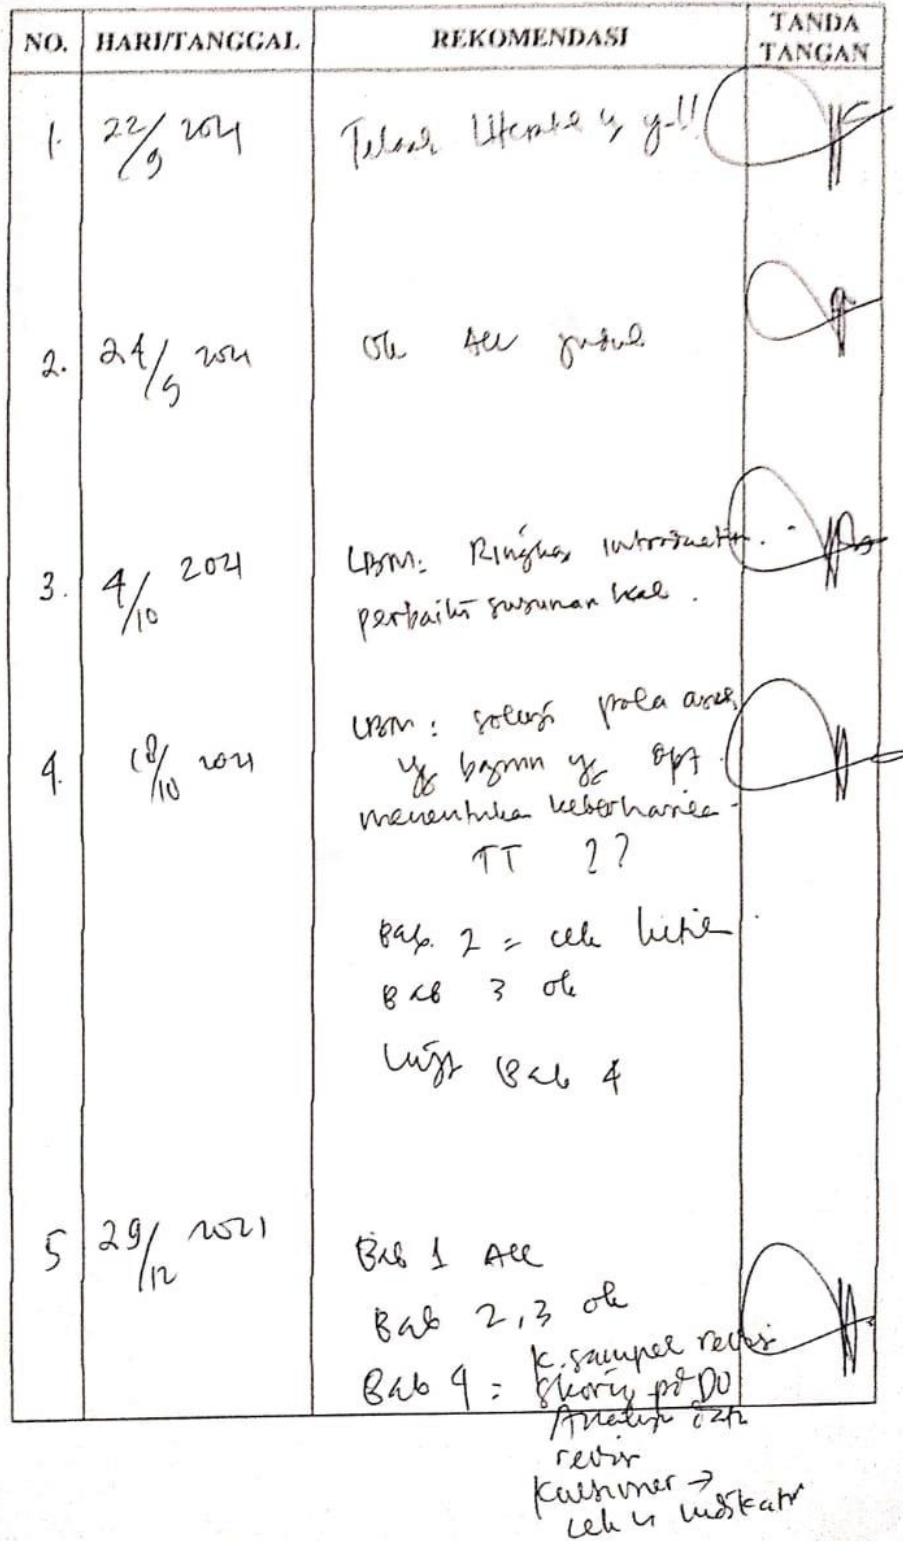 NO. HARI/TANGGAL REKOMENDASI TANDA TANGAN
1. 22/9 2021 Telaah Literatur y!!
2. 24/9 2021 Ok Acc judul
3. 4/10 2021 LBM: Ringkas introduction.
perbaiki susunan kal.
4. 18/10 2021 LBM: solusi pola asuh
yg bgmn yg opt
menentukan keberhasilan
TT ??
Bab. 2 = cek
Bab 3 ok
Bab 4
5 29/12 2021 Bab 1 Acc
Bab 2,3 ok
Bab 4 : k. sampel revisi
skoring pd DO
Analisis
revisi
kuesioner →
cek indikator